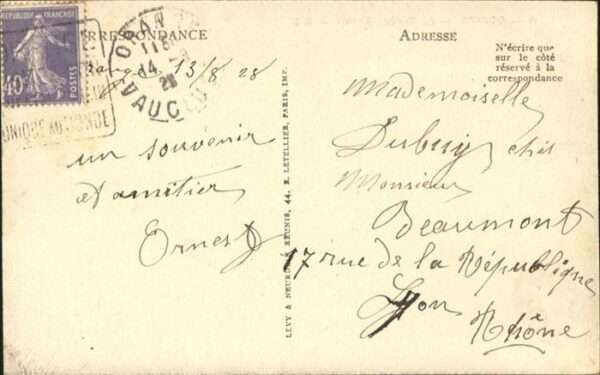 REPUBLIQUE FRANÇAISE
40c
POSTES
UNIQUE AU MONDE
ORANGE
14
28
VAUCLUSE
CORRESPONDANCE
Orange 13/8 28
un souvenir
et amitier
Ernest
LEVY & NEURDEIN REUNIS, 44, R. LETELLIER, PARIS, IMP.
ADRESSE
N'écrire que
sur le côté
réservé à la
correspondance
Mademoiselle
Dubuy chés
Monsieur
Beaumont
17 rue de la République
Lyon
Rhône